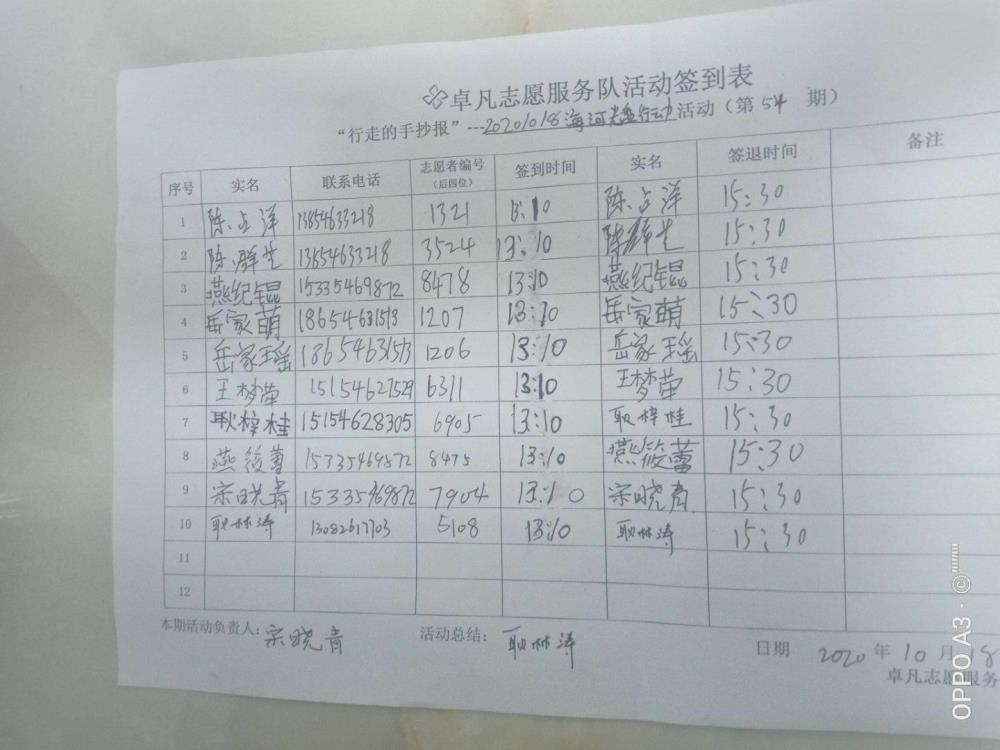 卓凡志愿服务队活动签到表
“行走的手抄报”---20201018海河光盘行动活动（第54期）
序号 实名 联系电话 志愿者编号（后四位） 签到时间 实名 签退时间 备注
1 陈占洋 13854633218 1321 13:10 陈占洋 15:30
2 陈群生 13854633218 3524 13:10 陈群生 15:30
3 燕纪锟 15335469872 8478 13:10 燕纪锟 15:30
4 岳家萌 18654631513 1207 13:10 岳家萌 15:30
5 岳家瑶 18654631513 1206 13:10 岳家瑶 15:30
6 王梦萤 15154627529 6311 13:10 王梦萤 15:30
7 耿梓桂 15154628305 6905 13:10 耿梓桂 15:30
8 燕筱蕾 15335469872 8475 13:10 燕筱蕾 15:30
9 宗晓青 15335469872 7904 13:10 宗晓青 15:30
10 耿林涛 13082617703 5108 13:10 耿林涛 15:30
11
12
本期活动负责人：宗晓青 活动总结：耿林涛 日期 2020年10月18
卓凡志愿服务
OPPO A3 · ©